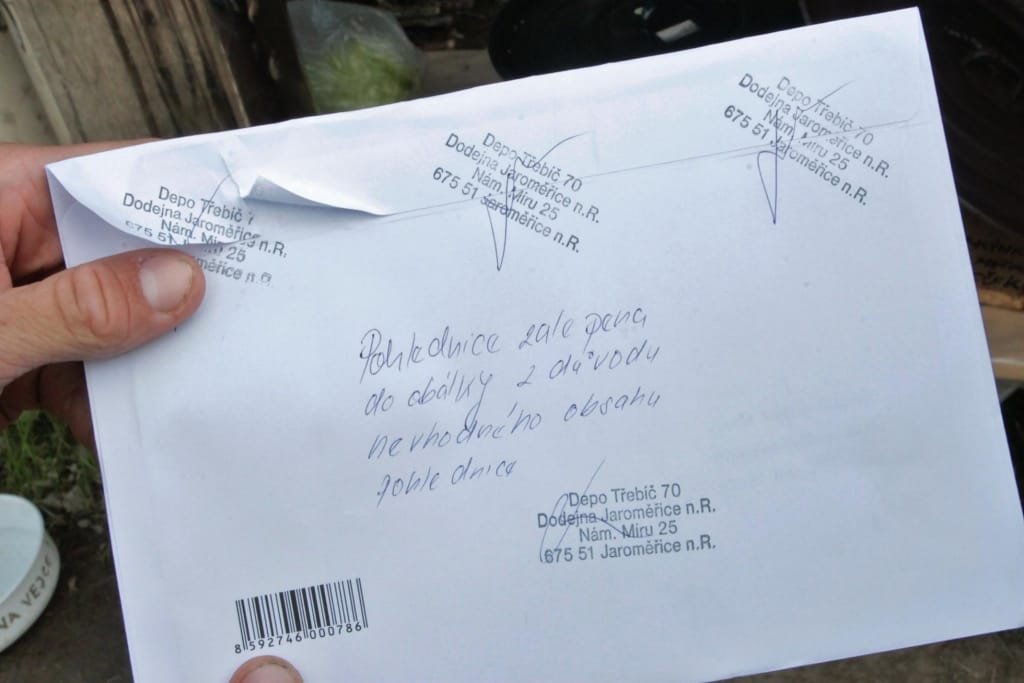 Depo Třebíč 70
Dodejna Jaroměřice n.R.
Nám. Míru 25
675 51 Jaroměřice n.R.
Depo Třebíč 70
Dodejna Jaroměřice n.R.
Nám. Míru 25
675 51 Jaroměřice n.R.
Depo Třebíč
Dodejna Jaroměřice n.R.
Nám. Míru 25
675 51 Jaroměřice n.R.
Pohlednice zalepena
do obálky z důvodu
nevhodného obsahu
pohlednice
Depo Třebíč 70
Dodejna Jaroměřice n.R.
Nám. Míru 25
675 51 Jaroměřice n.R.
8 592746 000786
NA VEJCE